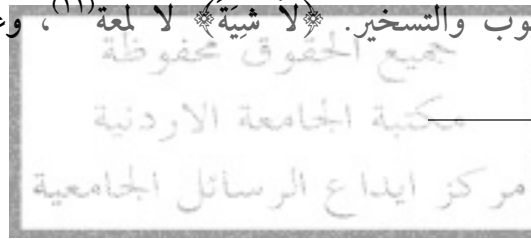 وب والتسخير. ﴿لاَ شِيَةَ﴾ لا لمعة(١١)، وع
جميع الحقوق محفوظة
مكتبة الجامعة الاردنية
مركز ايداع الرسائل الجامعية